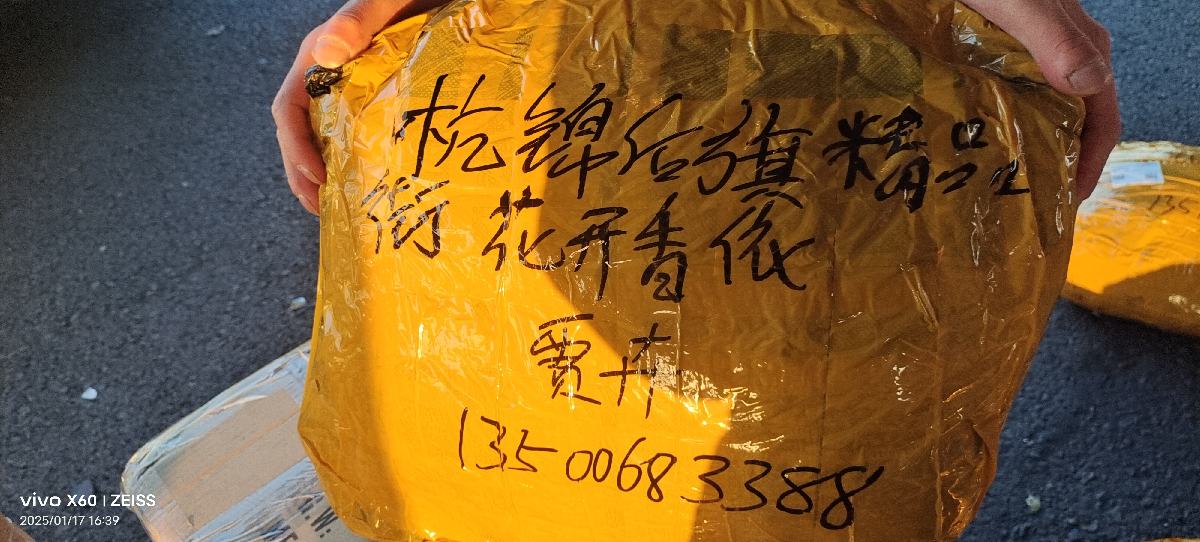 杭锦后旗精品
街花开香依
贾卉
13500683388
135
vivo X60 | ZEISS
2025/01/17 16:39